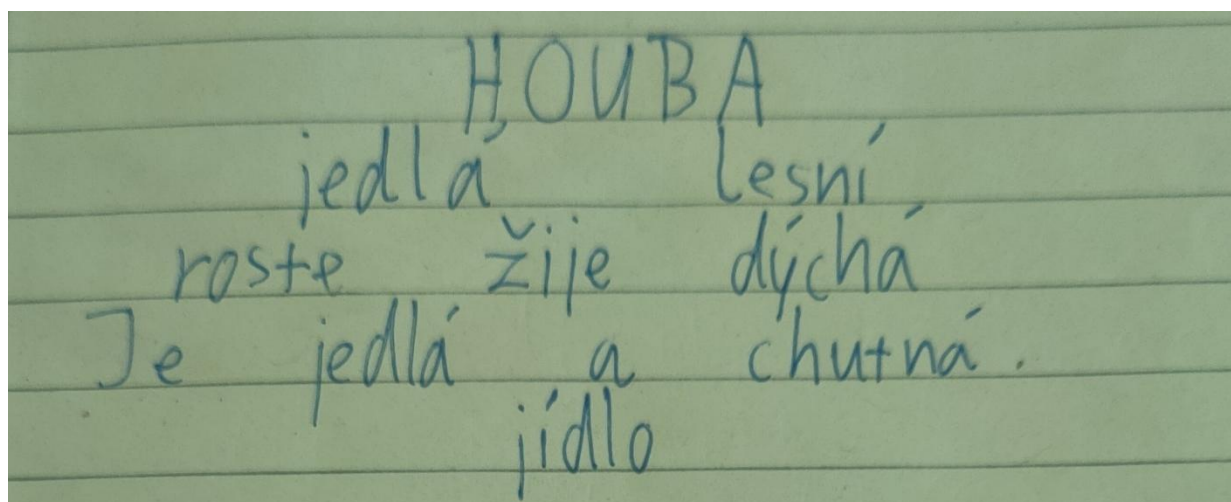 HOUBA
jedlá lesní
roste žije dýchá
Je jedlá a chutná.
jídlo